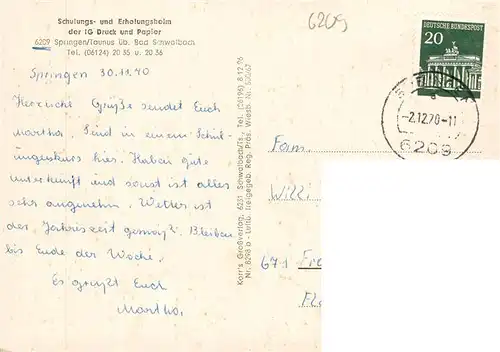 Schulungs- und Erholungsheim
der IG Druck und Papier
6209 Springen/Taunus üb. Bad Schwalbach
Tel. (06124) 20 35 u. 20 36
6209
DEUTSCHE BUNDESPOST
20
-2.12.70-11
6209
Springen 30.11.70
Herzliche Grüße sendet Euch
Martha. Sind in einem Schul-
ungskurs hier. Haben gute
Unterkunft und sonst ist alles
sehr angenehm. Wetter ist
der Jahreszeit gemäß. Bleiben
bis Ende der Woche.
Es grüßt Euch
Martha,
Korr's Großverlag, 6231 Schwalbach/Ts., Tel. (06196) 8 12 76
Nr. 8298 b - Luftb. freigegeb. Reg. Präs. Wiesb. Nr.
Fam.
Willi
671 Fre
Fl